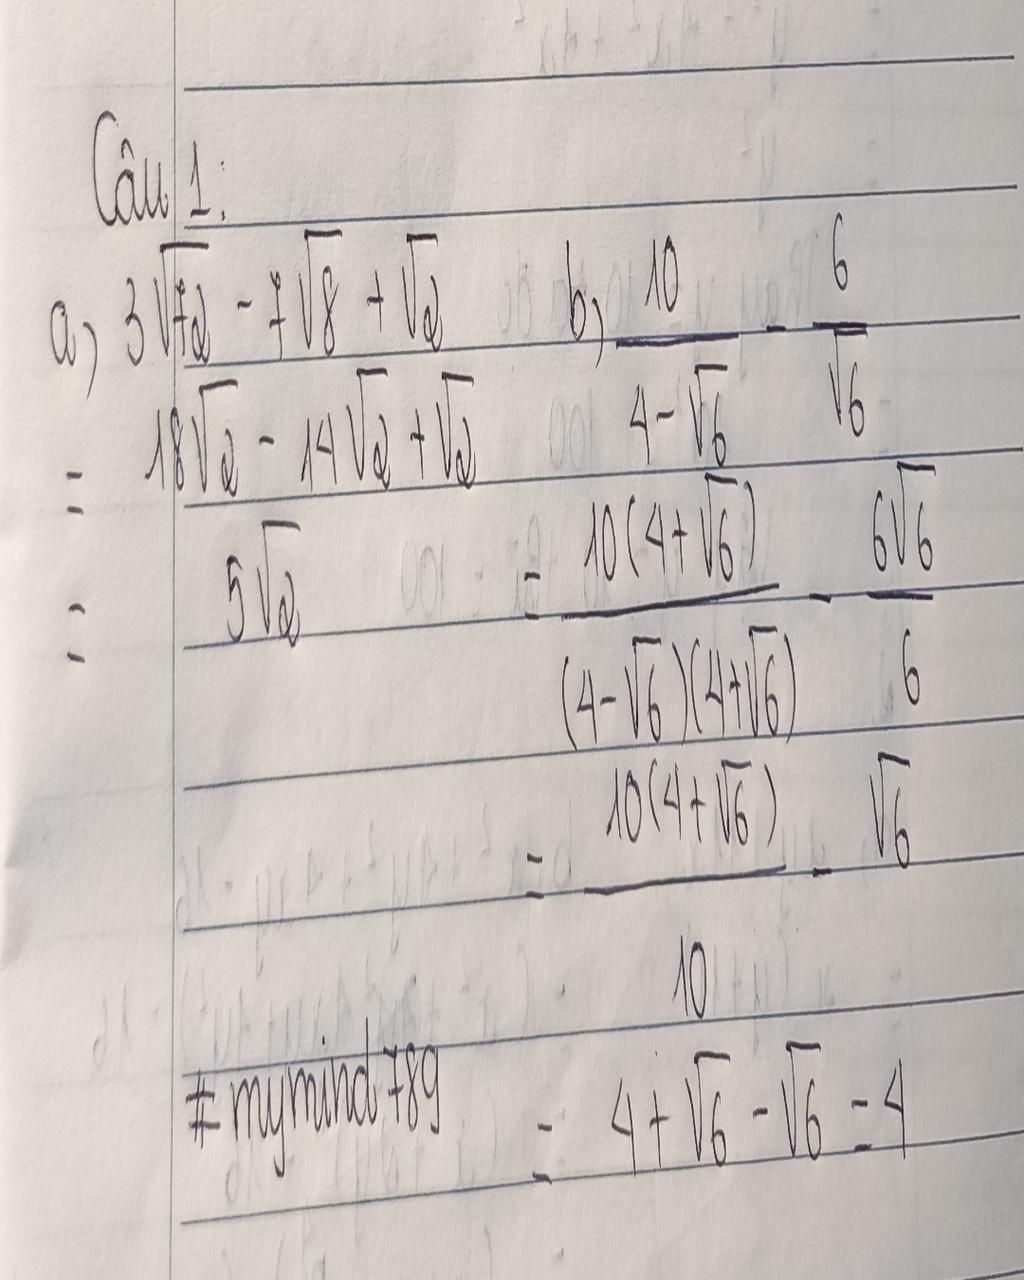 Câu 1:
a, 3√72 - 7√8 + √2
= 18√2 - 14√2 + √2
= 5√2
b, 10/(4-√6) - 6/√6
= 10(4+√6)/((4-√6)(4+√6)) - 6√6/6
= 10(4+√6)/10 - √6
= 4+√6 - √6 = 4
#mymind789